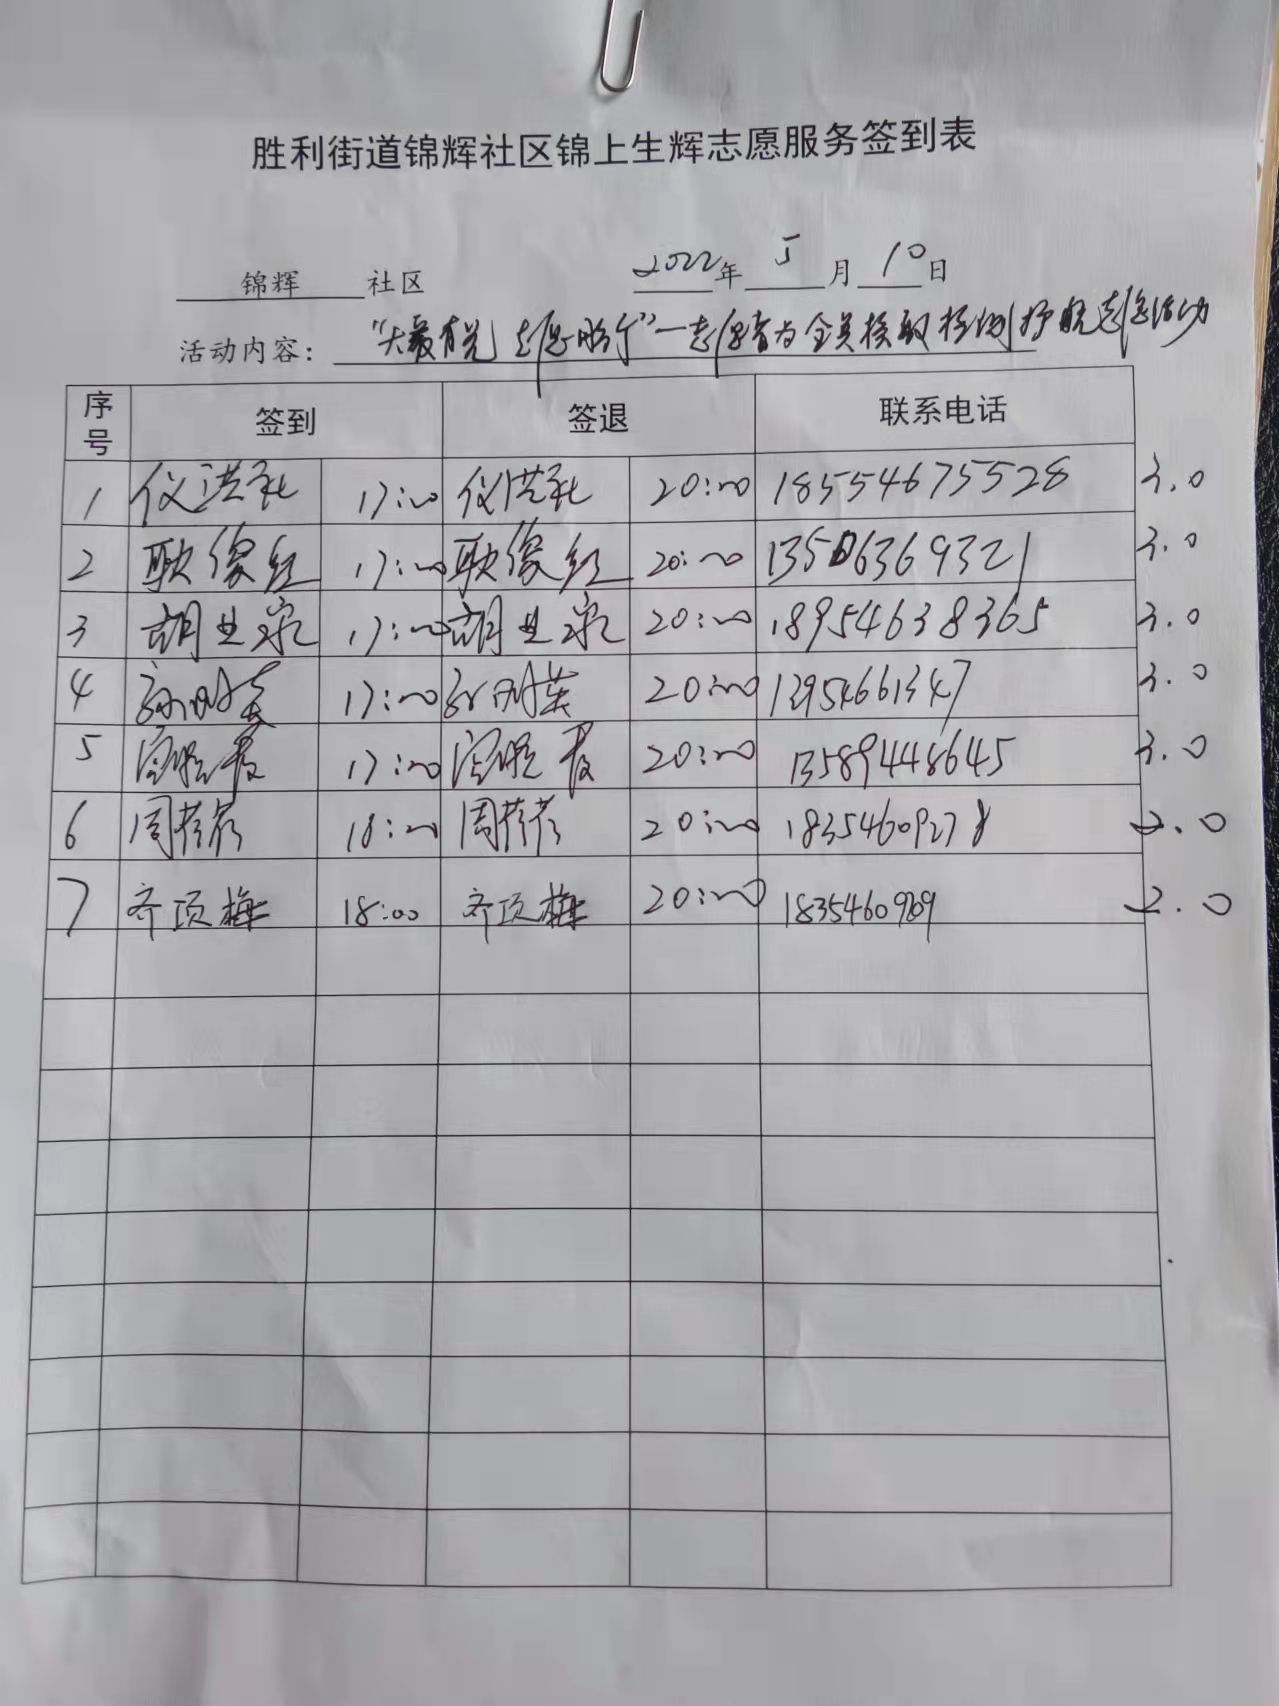 胜利街道锦辉社区锦上生辉志愿服务签到表
锦辉 社区 2022年 5月 10日
活动内容： 志愿者为全员核酸检测 志愿活动
序号 签到 签退 联系电话
1 仪洪礼 17:00 仪洪礼 20:00 18554675528 3.0
2 耿俊红 17:00 耿俊红 20:00 13506369321 3.0
3 胡业泉 17:00 胡业泉 20:00 18954638365 3.0
4 17:00 20:00 13954661347 3.0
5 17:00 20:00 13589448645 3.0
6 周 18:00 周 20:00 18354609278 2.0
7 齐项梅 18:00 齐项梅 20:00 2.0